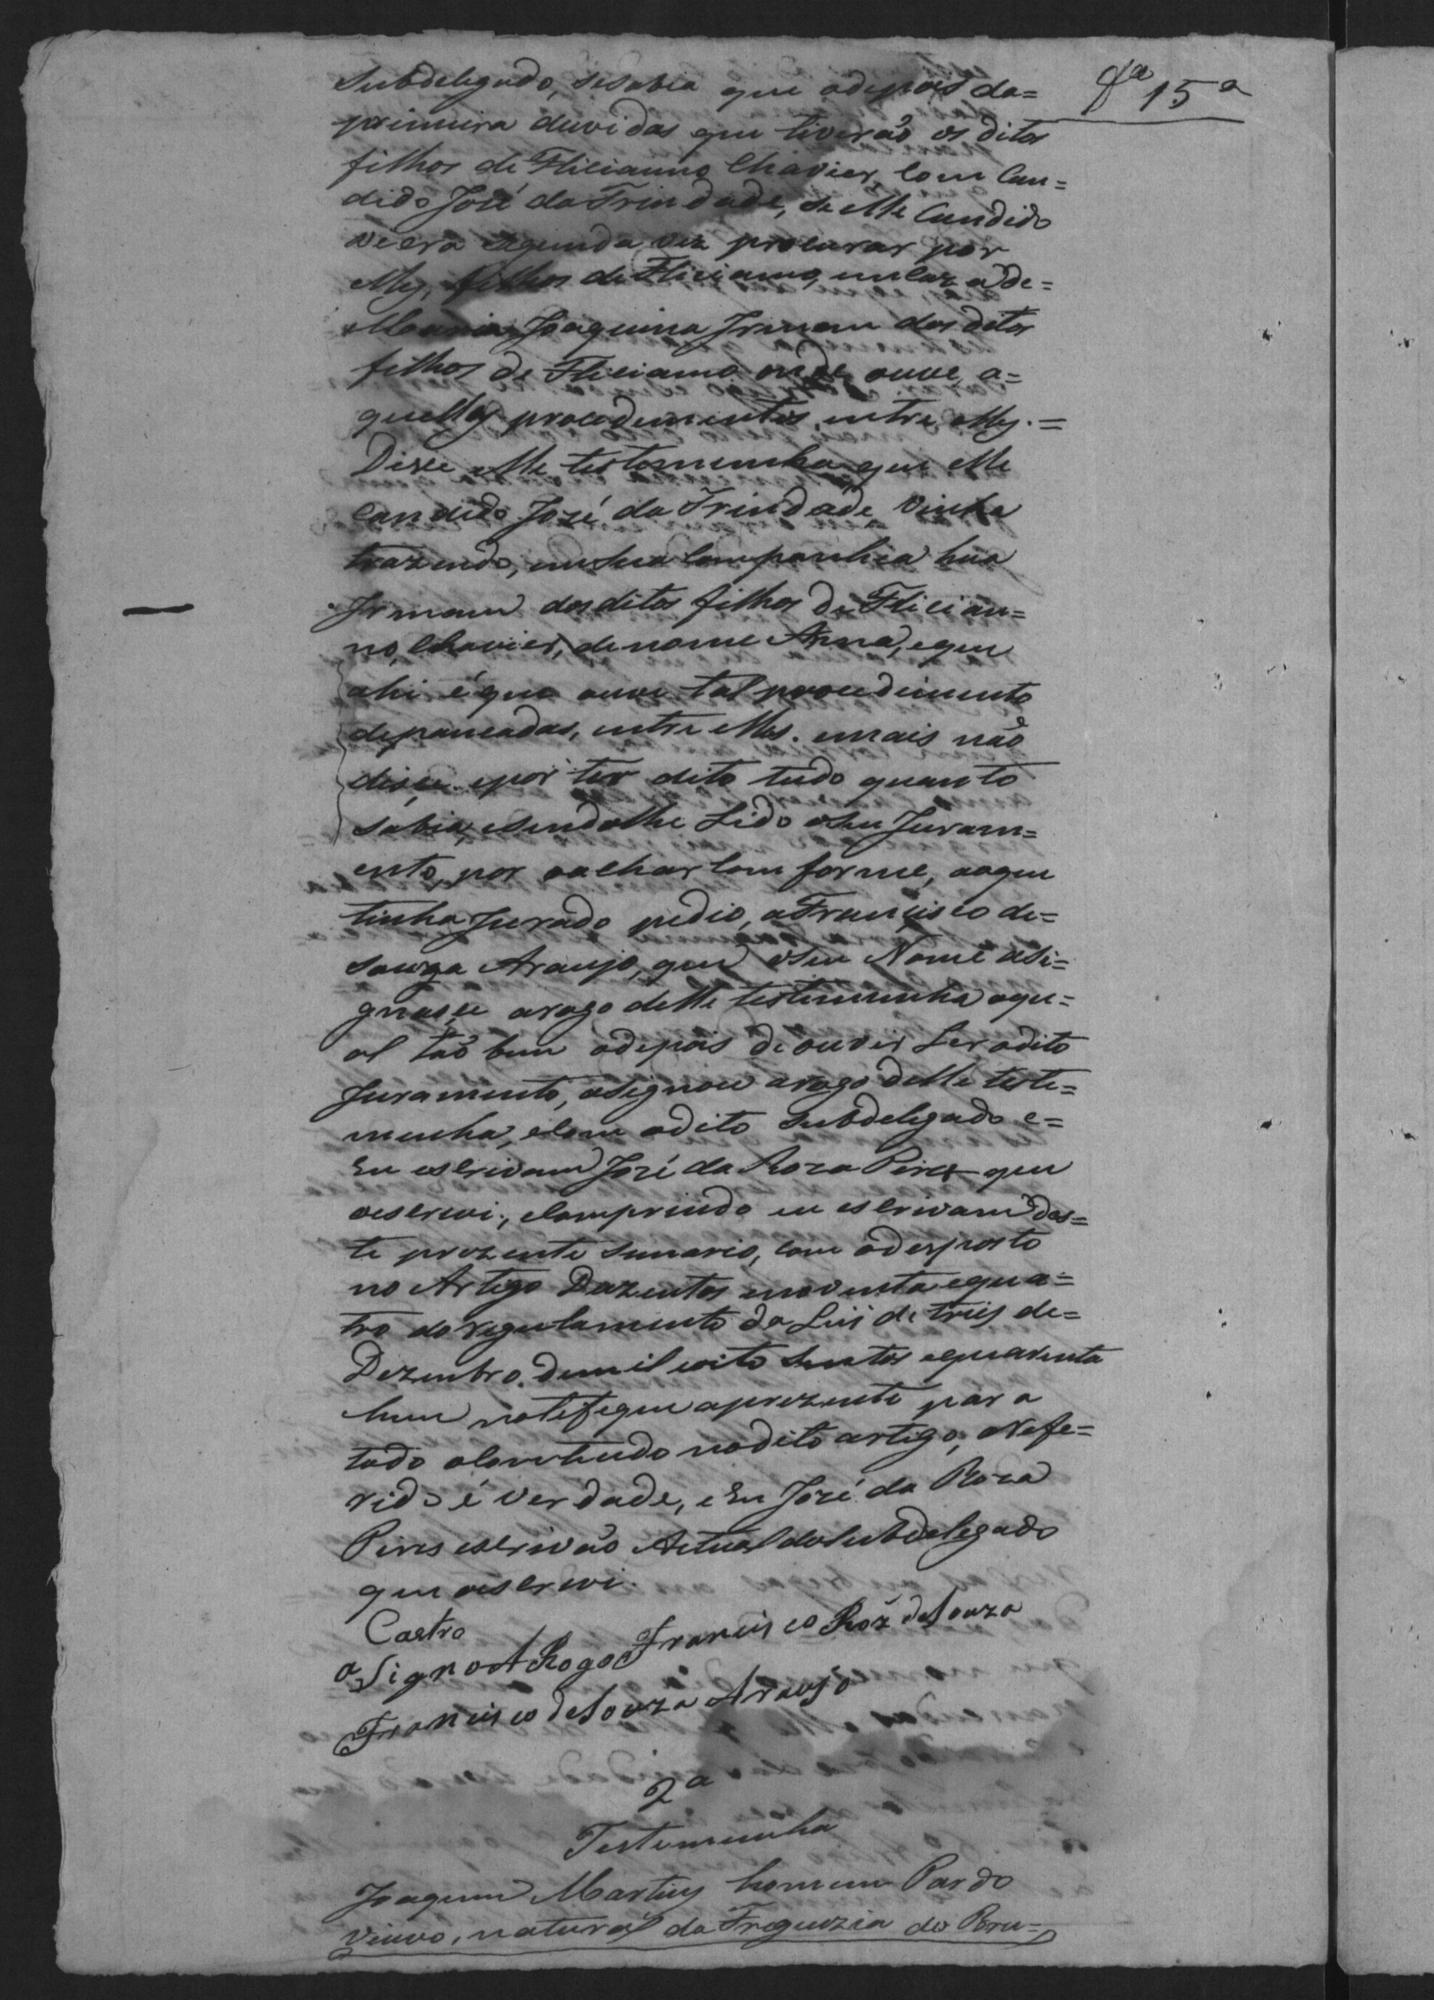 Subdelegado, sesabia que adepois da=
primeira duvidas que tiverão os ditos
filhos de Flicianno Chavier, com Can=
dido José da Trindade, se elle Candido
veera segunda vez procurar por
elles, filhos de Flicianno, em caza de=
Maria Joaquina Irmam dos ditos
filhos de Flicianno onde ouve a=
quelles procedimentos, entre elles.=
Disse elle testemunha que elle
Candido José da Trindade, vinha
trazendo, em sua Companhia hua
Irmam dos ditos filhos de Flician=
no, Chavier, de nome Anna, e que
ahi é que ouve tal procedimento
de pancadas, entre elles. emais não
disse. epor ter dito tudo quanto
sabia, esendolhe Lido oseu Juram=
ento, por o achar com forme, aoque
tinha Jurado pedio, a Francisco de=
Souza Araujo, que oseu Nome asi=
gnasse arogo delle testemunha oqu=
al tão bem adepois de ouvir Ler odito
Juramento, asignou arogo delle teste=
munha, ecom odito Subdelegado e=
Eu escrivam José da Roza Pires que
oescrevi., eComprindo eu escrivam des=
te prezente Sumario, com odesposto
no Artigo Duzentos enoventa equa=
tro do regulamento da Lei de tries de=
Dezembro. demil oito Sentos equarenta
hum notefiquei aprezente para
todo oContheudo nodito artigo, o Refe=
rido é verdade, e Eu José da Roza
Pires escrivão Actual do Subdelegado
que oescrevi.
Castro
aSigno A Rogo Francisco Roiz deSouza
Francisco deSouza Araujo
2a
Testemunha
Joaquim Martins homem Pardo
Viuvo, natural da Freguezia do
15